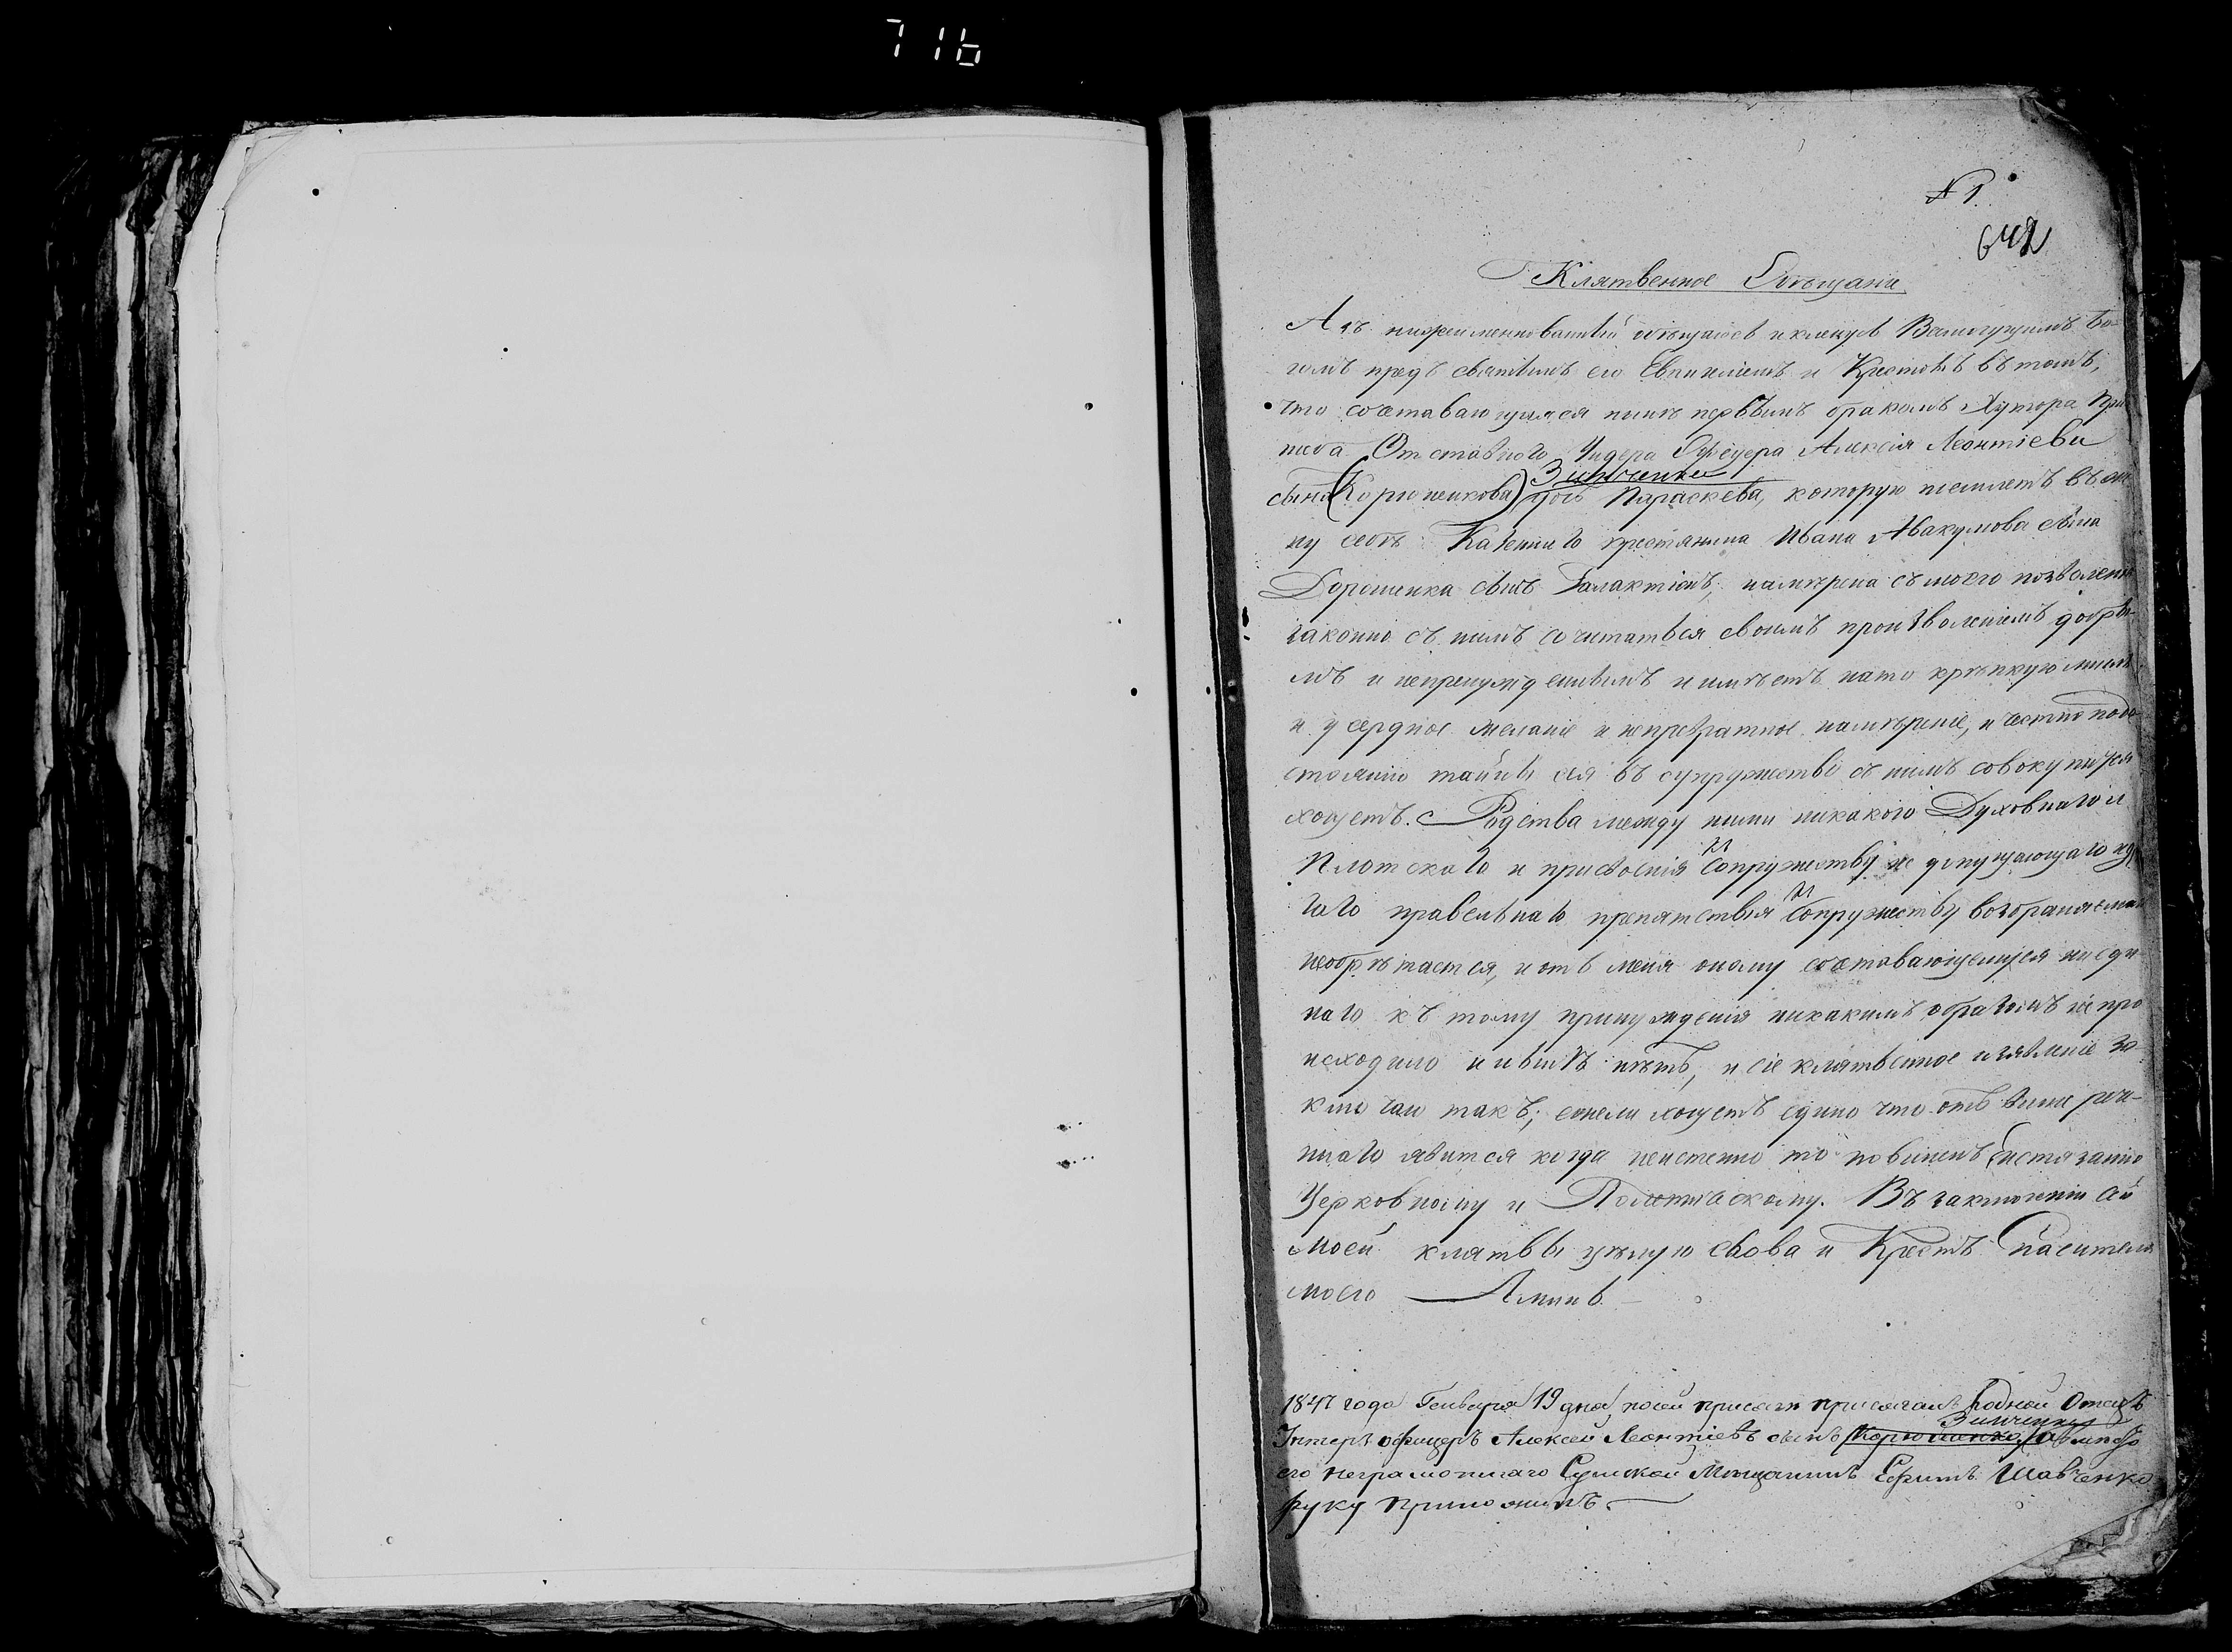 716
№ 1.
642
Клятвенное Обѣщаніе
Азъ нижеименнованный обѣщаюсь и кленусь Всемогущимъ Бо-
гомъ предъ святымъ его Евангелиемъ и Крестомъ въ томъ,
что сочетавающияся нынѣ первымъ бракомъ Хутора
Отставного Ундера Офицера Алексія Леонтіева
Зинченка
сына (Корюненкова) дочь Параскева, которую поемлетъ въ же-
ну себѣ Казеннаго крестянина Ивана Авакумова сына
Дорошенка сынъ Галактіонъ, намѣрена съ моего позволения
законно съ нимъ сочитаться своимъ произволениемъ добры-
мъ и непренужденнымъ и имѣетъ на то крѣпкую мысль
и усердное желаніе и непревратное намѣреніе, и честно подо-
стоянию тайны сея въ супружестве съ нимъ совокупится
хощетъ. Родства между ними никакого Духовнаго и
Плотскаго и присвоения к сопружеству не допущающаго и дру-
гаго правельнаго препятствия к сопружеству возбраняемаго
необрѣтается, и отъ меня оному сочетавающемуся ниеди-
наго къ тому принуждения никакимъ образомъ не про
исходило и нынѣ нѣтъ, и сіе клятвенное изявленіе за-
ключаю такъ; ежели хощетъ едино что отъ выше рече-
ннаго явится когда неистенно то повиненъ истязанию
Церковному и Политическому. Въ заключеніи сей
моей клятвы цѣлую слова и Крестъ Спасителя
моего Аминь.
1847 года Генваря 19 дня, посей присяги присягалъ Родной Отецъ
Зинченко
Унтеръ офицеръ Алексей Леонтіевъ сынъ Корюненко, а вместо
его неграмотнаго Сумской Мещанинъ Ефимъ Шавченко
руку приложилъ.